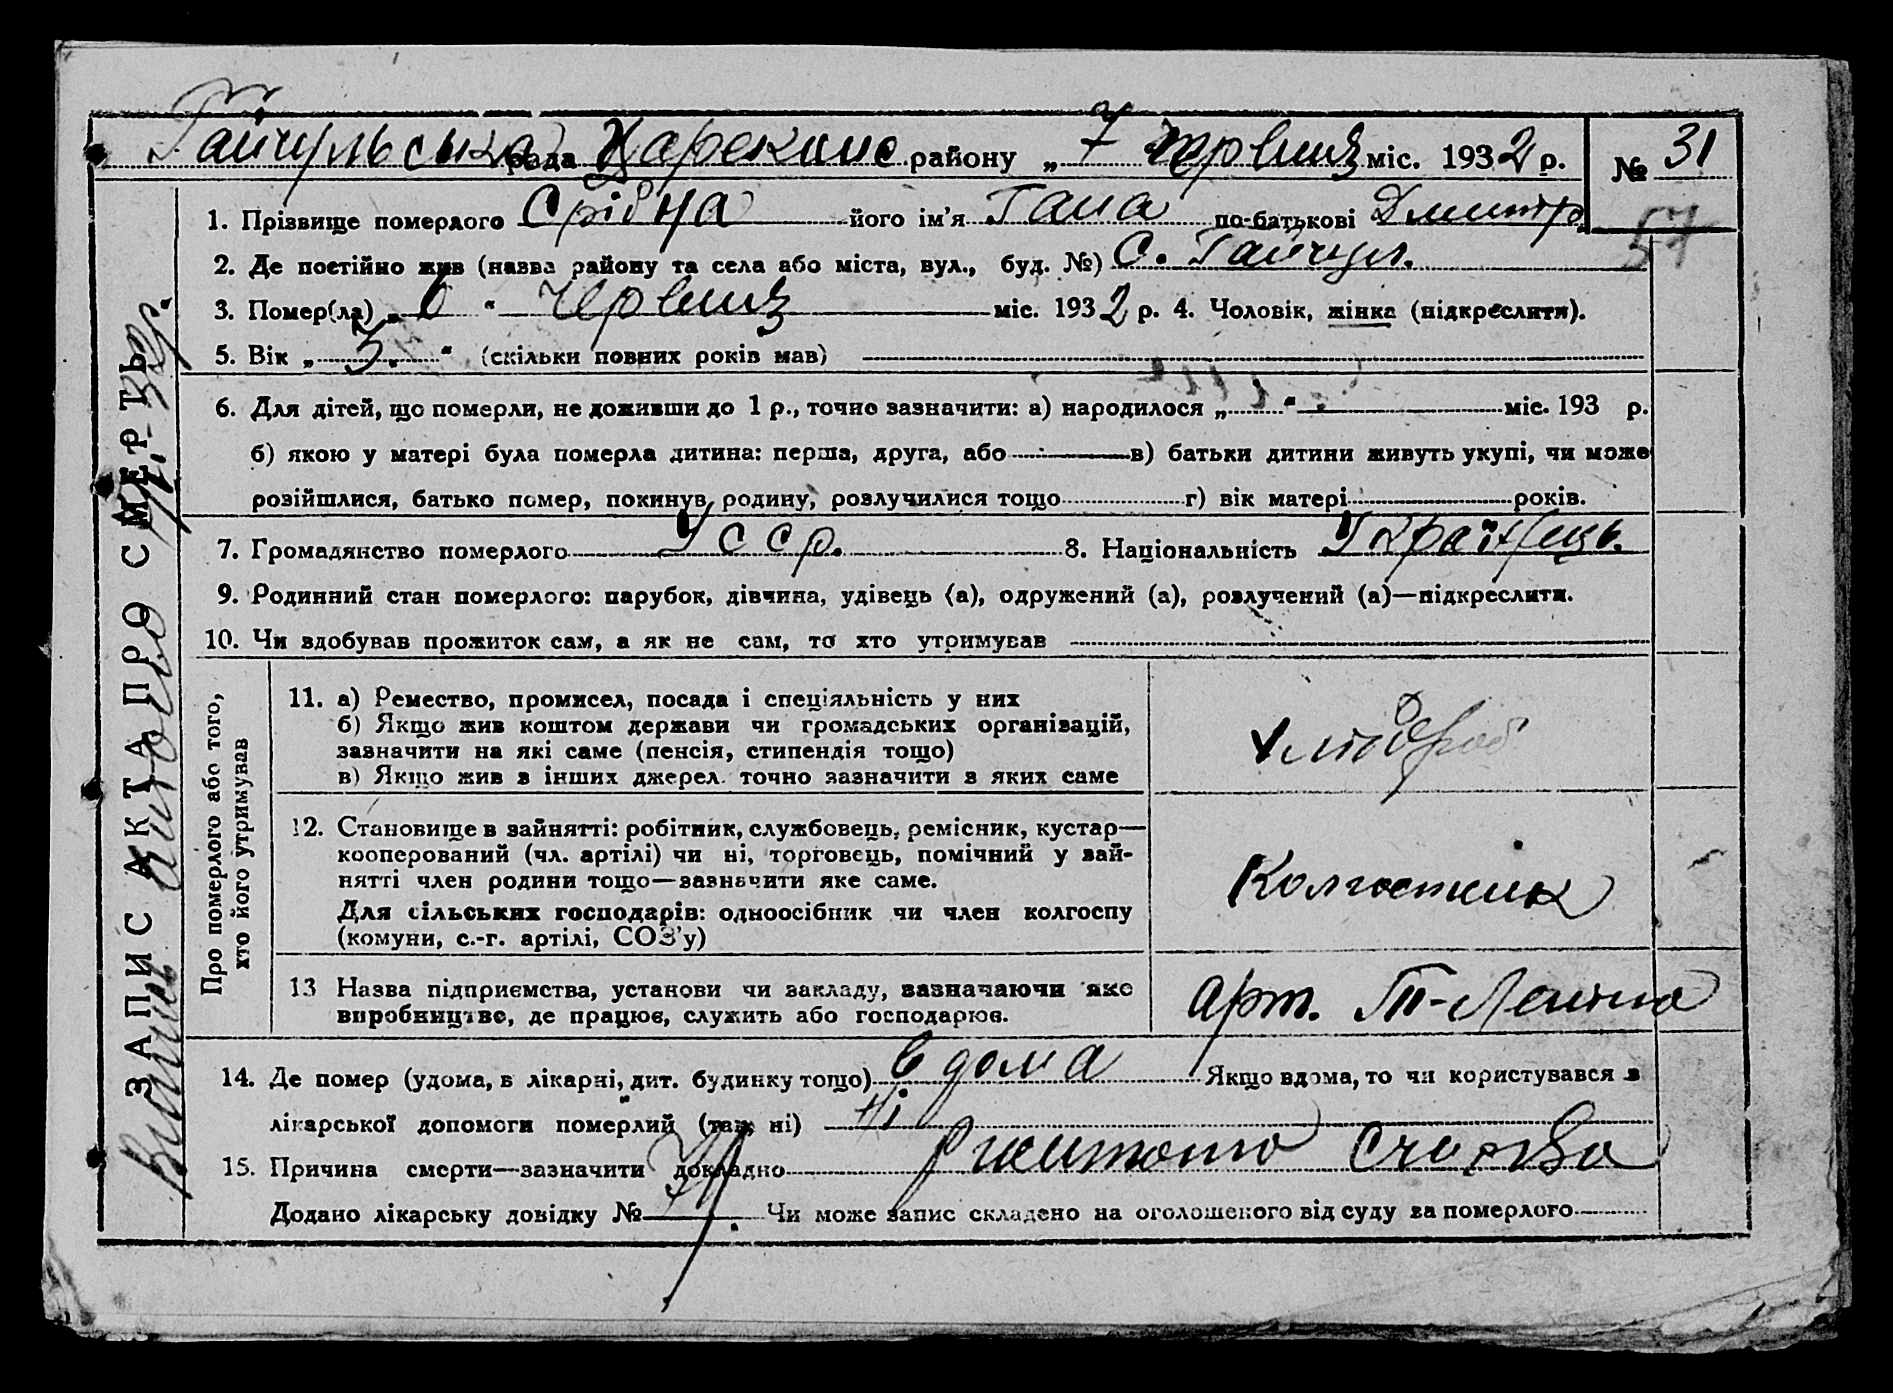 Гайчульська рада Царекинс району „ 7 червня міс. 1932 р. № 31
57
1. Прізвище померлого Срібна його ім’я Гана по-батькові Дмитро
2. Де постійно жив (назва району та села або міста, вул., буд. №) С. Гайчул.
3. Помер(ла) „ 6 “ Червня міс. 1932 р. 4. Чоловік, жінка (підкреслити).
5. Вік „ 5. “ (скільки повних років мав)
6. Для дітей, що померли, не доживши до 1 р., точно зазначити: а) народилося „ “ міс. 193 р.
б) якою у матері була померла дитина: перша, друга, або в) батьки дитини живуть укупі, чи може
розійшлися, батько помер, покинув родину, розлучилися тощо г) вік матері років.
7. Громадянство померлого Усср. 8. Національність Українець.
9. Родинний стан померлого: парубок, дівчина, удівець (а), одружений (а), розлучений (а)—підкреслити.
10. Чи здобував прожиток сам, а як не сам, то хто утримував
ЗАПИС АКТА ПРО СМЕРТЬ
Про померлого або того, хто його утримував
11. а) Ремество, промисел, посада і спеціяльність у них
б) Якщо жив коштом держави чи громадських організацій,
зазначити на які саме (пенсія, стипендія тощо)
в) Якщо жив з інших джерел точно зазначити з яких саме
хлібороб
12. Становище в зайнятті: робітник, службовець, ремісник, кустар—
кооперований (чл. артілі) чи ні, торговець, помічний у зай-
нятті член родини тощо—зазначити яке саме.
Для сільських господарів: одноосібник чи член колгоспу
(комуни, с.-г. артілі, СОЗ’у)
Колгостник
13 Назва підприємства, установи чи закладу, зазначаючи яке
виробництво, де працює, служить або господарює.
арт. Леніна
14. Де помер (удома, в лікарні, дит. будинку тощо) в дома Якщо вдома, то чи користувався з
лікарської допомоги померлий (так, ні) Ні
15. Причина смерти—зазначити докладно
Додано лікарську довідку № Чи може запис складено на оголошеного від суду за померлого